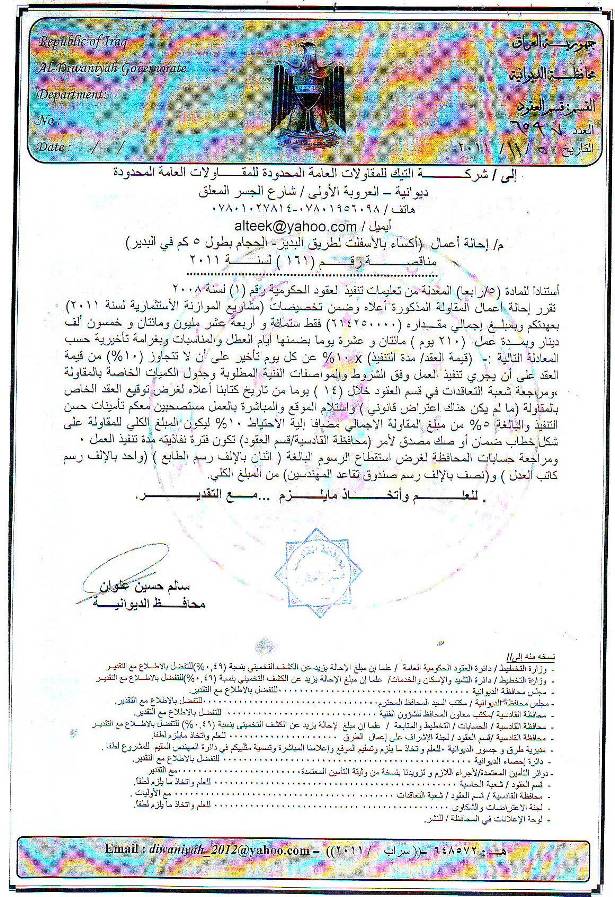 Republic of Iraq
جمهورية العراق
AL-Diwaniyah Governorate
محافظة الديوانية
Department:
القسم: قسم العقود
No:
العدد
Date : / /
التاريخ
إلى / شركـــة التيك للمقاولات العامة المحدودة للمقاولات العامة المحدودة
ديوانية – العروبة الأولى / شارع الجسر المعلق
هاتف / ٠٧٨٠١٩٥٦٠٩٨-٠٧٨٠١٠٢٧٨١٤
أيميل / alteek@yahoo.com
م/ إحالة أعمال (أكساء بالأسفلت لطريق البدير- الحجام بطول ٥ كم في البدير)
مناقصـــة رقـــم (١٦١) لسنـــة ٢٠١١
أستناداً للمادة (٥/رابعا) المعدلة من تعليمات تنفيذ العقود الحكومية رقم (١) لسنة ٢٠٠٨
تقرر إحالة أعمال المقاولة المذكورة أعلاه وضمن تخصيصات (مشاريع الموازنة الأستثمارية لسنة ٢٠١١)
بعهدتكم وبمبلغ إجمالي مقداره (٦١٤٢٥٠٠٠٠) فقط ستمائة و أربعة عشر مليون ومائتان و خمسون ألف
دينار وبمدة عمل (٢١٠ يوم) مائتان و عشرة يوما بضمنها أيام العطل والمناسبات وبغرامة تأخيرية حسب
المعادلة التالية :- (قيمة العقد/ مدة التنفيذ) x ١٠% عن كل يوم تأخير على أن لا تتجاوز (١٠%) من قيمة
العقد على أن يجري تنفيذ العمل وفق الشروط والمواصفات الفنية المطلوبة وجدول الكميات الخاصة بالمقاولة
،ومراجعة شعبة التعاقدات في قسم العقود خلال (١٤) يوما من تاريخ كتابنا أعلاه لغرض توقيع العقد الخاص
بالمقاولة (ما لم يكن هناك اعتراض قانوني) واستلام الموقع والمباشرة بالعمل مستصحبين معكم تأمينات حسن
التنفيذ والبالغة ٥% من مبلغ المقاولة الاجمالي مضافا إلية الاحتياط ١٠% ليكون المبلغ الكلي للمقاولة على
شكل خطاب ضمان أو صك مصدق لأمر (محافظة القادسية/قسم العقود) تكون فترة نفاذيته مدة تنفيذ العمل .
ومراجعة حسابات المحافظة لغرض استقطاع الرسوم البالغة ( اثنان بالإلف رسم الطابع ) (واحد بالإلف رسم
كاتب العدل ) و(نصف بالإلف رسم صندوق تقاعد المهندسين) من المبلغ الكلي.
. للعلـــم وأتخـــاذ مايلـــزم ...مـــع التقديـــر.
سالم حسين علوان
محافـــظ الديوانيـــة
نسخه منه إلى//
- وزارة التخطيط / دائرة العقود الحكومية العامة / علما إن مبلغ الإحالة يزيد عن الكشف التخميني بنسبة (٠,٤٩%)للتفضل بالاطلاع مع التقدير
- وزارة التخطيط / دائرة التشيد والإسكان والخدمات/ علما إن مبلغ الإحالة يزيد عن الكشف التخميني بنسبة (٠,٤٩%)للتفضل بالاطلاع مع التقدير
- مجلس محافظة الديوانية .......... للتفضل بالاطلاع مع التقدير.
- مجلس محافظة الديوانية / مكتب السيد المحافظ المحترم .......... للتفضل بالاطلاع مع التقدير.
- محافظة القادسية /مكتب معاون المحافظ لشؤون الفنية .......... للتفضل بالاطلاع مع التقدير.
- محافظة القادسية / الحسابات / التخطيط والمتابعة / علما إن مبلغ الإحالة يزيد عن الكشف التخميني بنسبة (٠,٤٩%) للتفضل بالاطلاع مع التقدير
- محافظة القادسية /قسم العقود / لجنة الإشراف على إعمال الطرق .......... للعلم واتخاذ مايلزم لطفا.
- مديرية طرق و جسور الديوانية - للعلم و اتخاذ ما يلزم وتسليم الموقع وإعلامنا المباشرة وتسمية ممثليكم في دائرة المهندس المقيم للمشروع لطفا.
- دائرة إحصاء الديوانية .......... للتفضل بالاطلاع مع التقدير.
- دوائر التأمين المعتمدة/لأجراء اللازم و تزويدنا بنسخة من وثيقة التأمين المعتمدة .......... مع التقدير.
- قسم العقود / شعبة الحاسبة .......... للعلم واتخاذ ما يلزم لطفا.
- محافظة القادسية / قسم العقود / شعبة التعاقدات .......... مع الأوليات .
- لجنة الاعتراضات والشكاوى .......... للعلم واتخاذ ما يلزم لطفا.
- لوحة الإعلانات في المحافظة / للنشر.
هـ: ٦٤٨٥٧٢ –((سراب / ٢٠١١)) – Email : diwaniyah_2012@yahoo.com